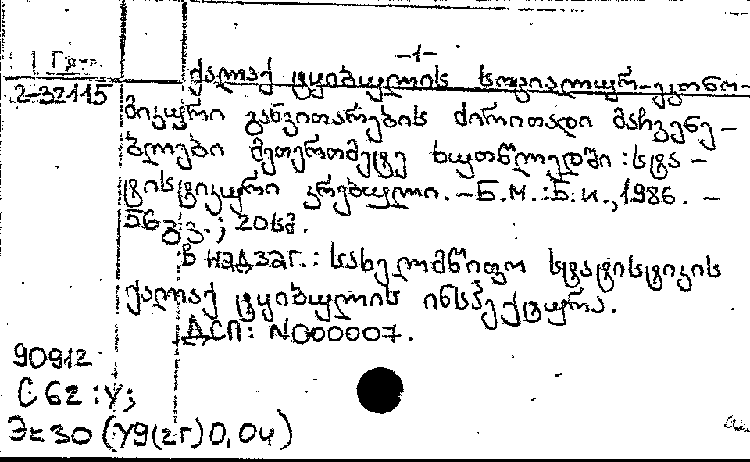 -1-
1 Груз.
ქალაქ ტყიბულის სოციალურ-ეკონო-
2-32115
მიკური განვითარების ძირითადი მაჩვენე-
ბლები მეთერთმეტე ხუთწლედში : სტა-
ტისტიკური კრებული. -Б.М. : Б.И., 1986. -
56 გვ. ; 20 სმ.
В надзаг. : სახელმწიფო სტატისტიკის
ქალაქ ტყიბულის ინსპექტურა.
ДСП : N000007.
90912
С62 : У;
Эк30 (У9(2Г)0,04)